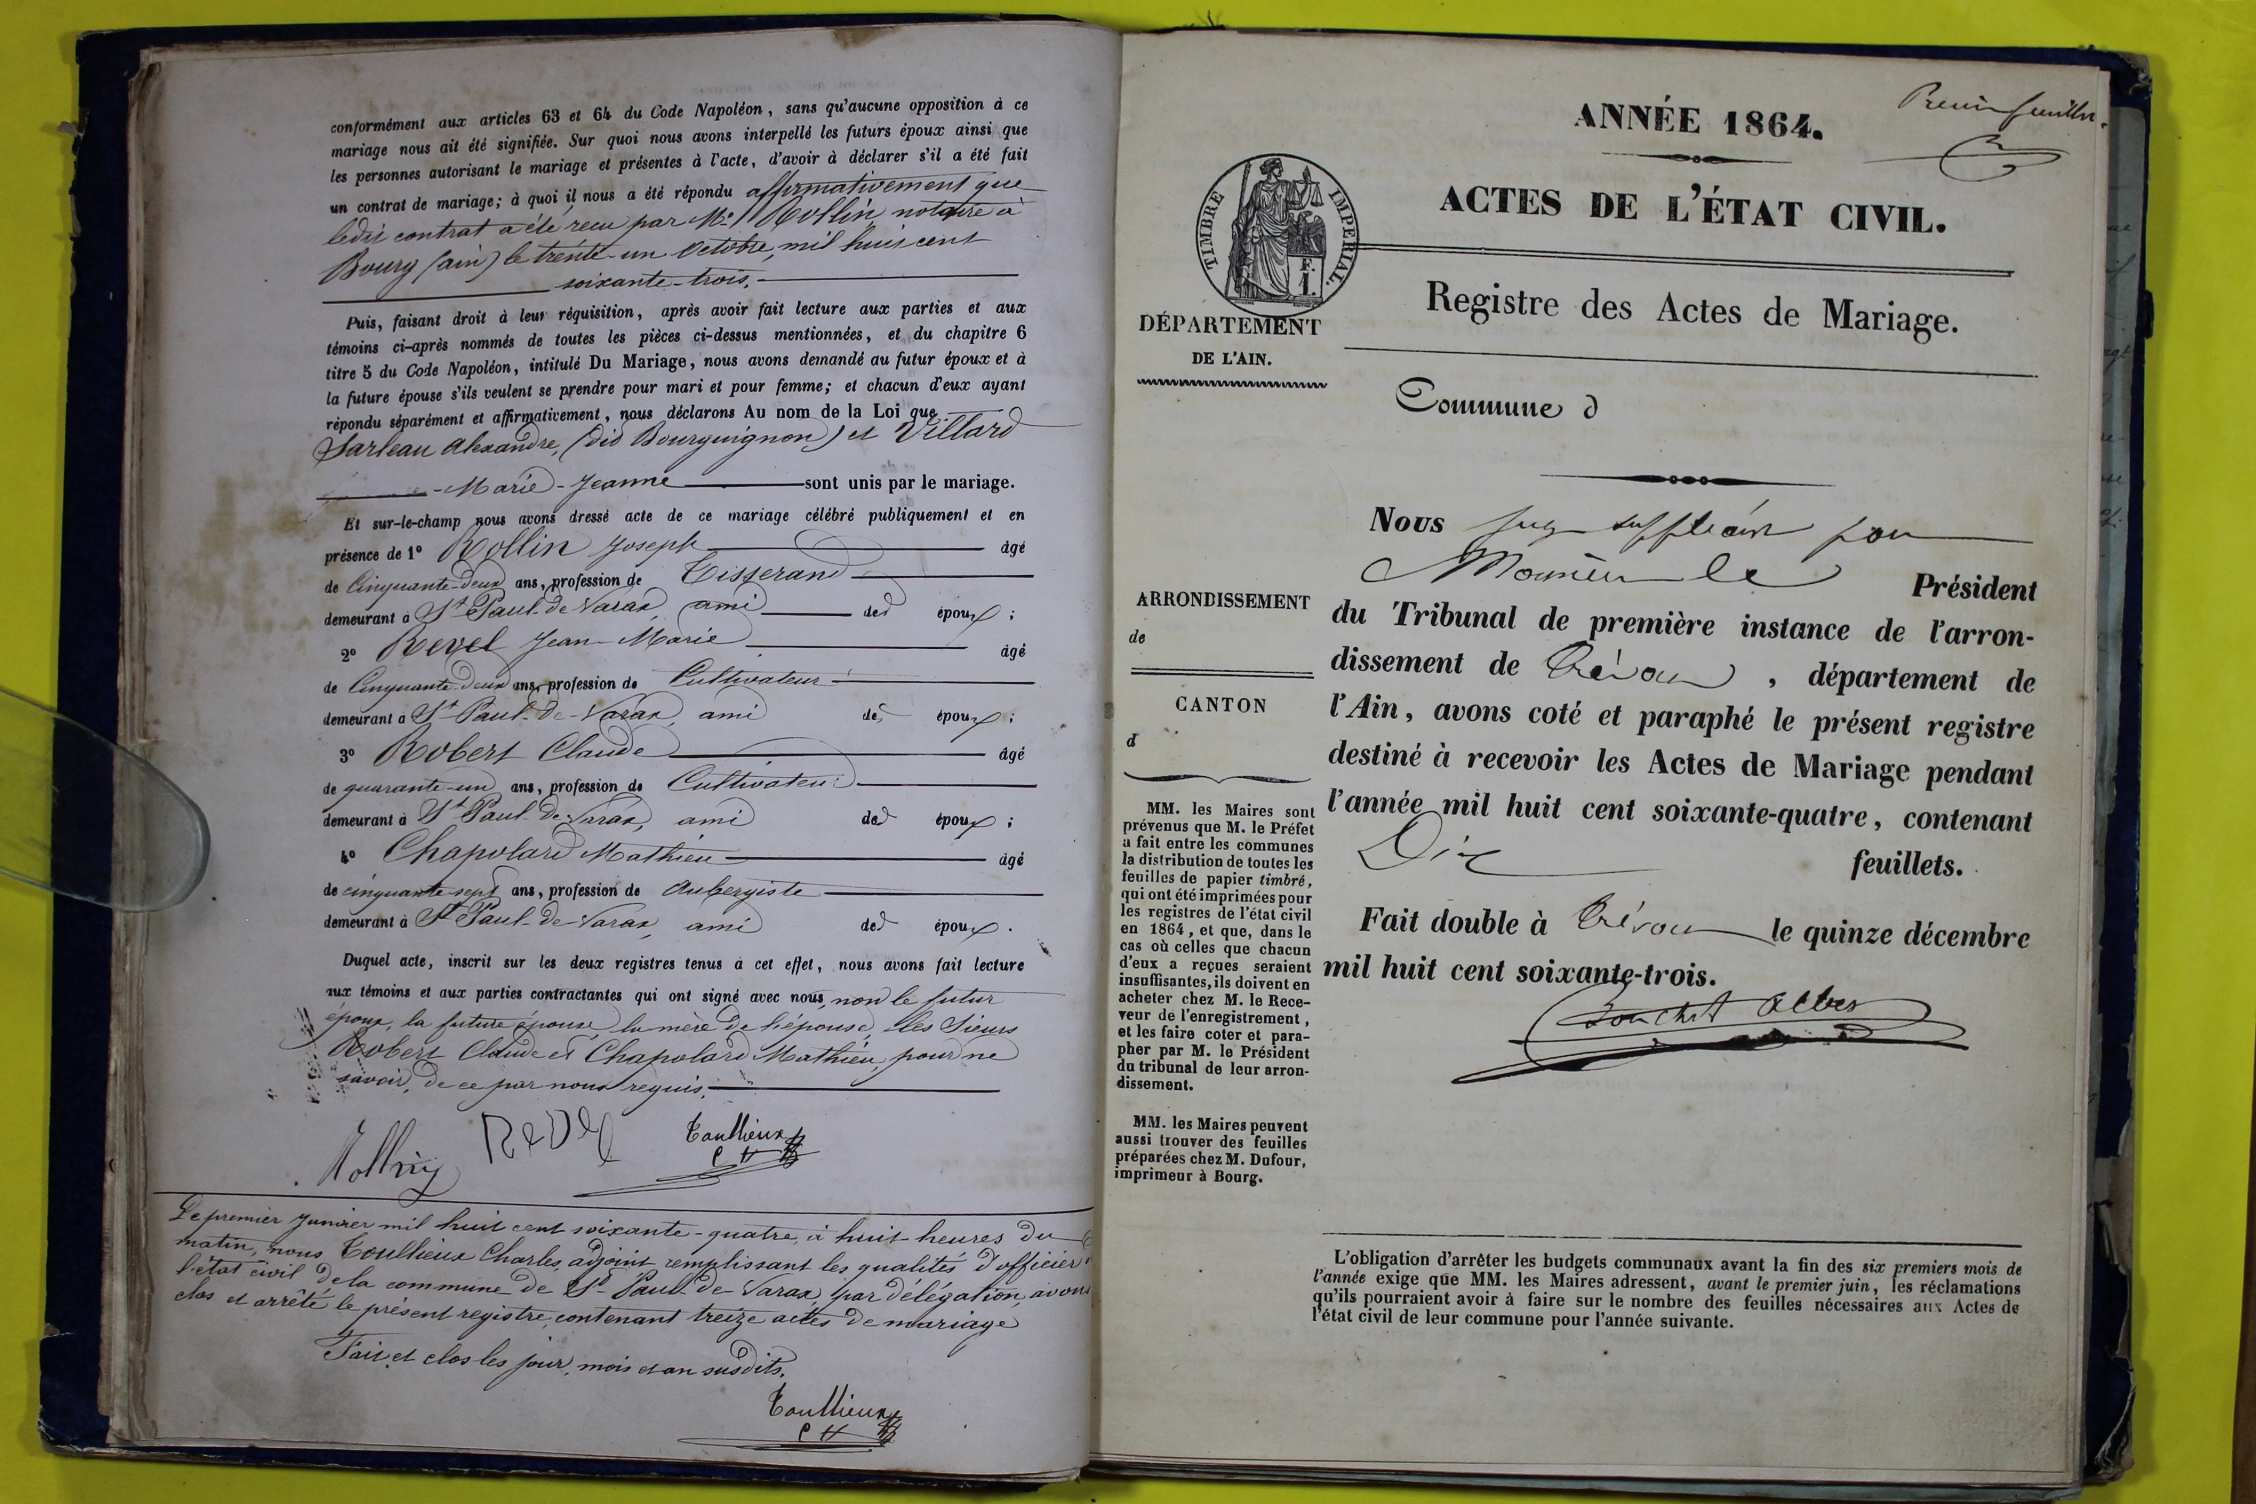 conformément aux articles 63 et 64 du Code Napoléon, sans qu'aucune opposition à ce
mariage nous ait été signifiée. Sur quoi nous avons interpellé les futurs époux ainsi que
les personnes autorisant le mariage et présentes à l'acte, d'avoir à déclarer s'il a été fait
un contrat de mariage; à quoi il nous a été répondu affirmativement que
ledit contrat a été reçu par Me Rollin notaire à
Bourg (ain) le trente-un octobre, mil huit cent
soixante-trois.
Puis, faisant droit à leur réquisition, après avoir fait lecture aux parties et aux
témoins ci-après nommés de toutes les pièces ci-dessus mentionnées, et du chapitre 6
titre 5 du Code Napoléon, intitulé Du Mariage, nous avons demandé au futur époux et à
la future épouse s'ils veulent se prendre pour mari et pour femme; et chacun d'eux ayant
répondu séparément et affirmativement, nous déclarons Au nom de la Loi que
Sarleau Alexandre, (dit Bourguignon) et Villard
Marie-Jeanne sont unis par le mariage.
Et sur-le-champ nous avons dressé acte de ce mariage célébré publiquement et en
présence de 1° Rollin Joseph âgé
de Cinquante-deux ans, profession de Tisserand
demeurant à St Paul-de-Varax, ami des époux;
2° Revel Jean-Marie âgé
de Cinquante-Deux ans, profession de Cultivateur
demeurant à St Paul-de-Varax, ami des époux;
3° Robert Claude âgé
de quarante-un ans, profession de Cultivateur
demeurant à St Paul-de-Varax, ami des époux;
4° Chapolard Mathieu âgé
de cinquante-sept ans, profession de Aubergiste
demeurant à St Paul-de-Varax, ami des époux.
Duquel acte, inscrit sur les deux registres tenus à cet effet, nous avons fait lecture
aux témoins et aux parties contractantes qui ont signé avec nous, non le futur
époux, la future épouse, la mère de l'épouse, les sieurs
Robert Claude et Chapolard Mathieu, pour ne
savoir, de ce par nous requis.
Rollin Revel Toullieux
Le premier Janvier mil huit cent soixante-quatre, à huit heures du
matin, nous Toullieux Charles, adjoint remplissant les qualités d'officier
l'état civil de la commune de St Paul-de-Varax, par délégation, avons
clos et arrêté le présent registre, contenant treize actes de mariage
Fait et clos les jour, mois et an susdits.
Toullieux
Premier feuillet.
ANNÉE 1864.
ACTES DE L'ÉTAT CIVIL.
TIMBRE IMPÉRIAL.
F.
1.
Registre des Actes de Mariage.
DÉPARTEMENT
DE L'AIN.
Commune d
Nous juge suppléant pour
Monsieur le Président
du Tribunal de première instance de l'arron-
dissement de Trévoux, département de
l'Ain, avons coté et paraphé le présent registre
destiné à recevoir les Actes de Mariage pendant
l'année mil huit cent soixante-quatre, contenant
Dix feuillets.
Fait double à Trévoux le quinze décembre
mil huit cent soixante-trois.
ARRONDISSEMENT
de
CANTON
d
MM. les Maires sont
prévenus que M. le Préfet
a fait entre les communes
la distribution de toutes les
feuilles de papier timbré,
qui ont été imprimées pour
les registres de l'état civil
en 1864, et que, dans le
cas où celles que chacun
d'eux a reçues seraient
insuffisantes, ils doivent en
acheter chez M. le Rece-
veur de l'enregistrement,
et les faire coter et para-
pher par M. le Président
du tribunal de leur arron-
dissement.
MM. les Maires peuvent
aussi trouver des feuilles
préparées chez M. Dufour,
imprimeur à Bourg.
L'obligation d'arrêter les budgets communaux avant la fin des six premiers mois de
l'année exige que MM. les Maires adressent, avant le premier juin, les réclamations
qu'ils pourraient avoir à faire sur le nombre des feuilles nécessaires aux Actes de
l'état civil de leur commune pour l'année suivante.